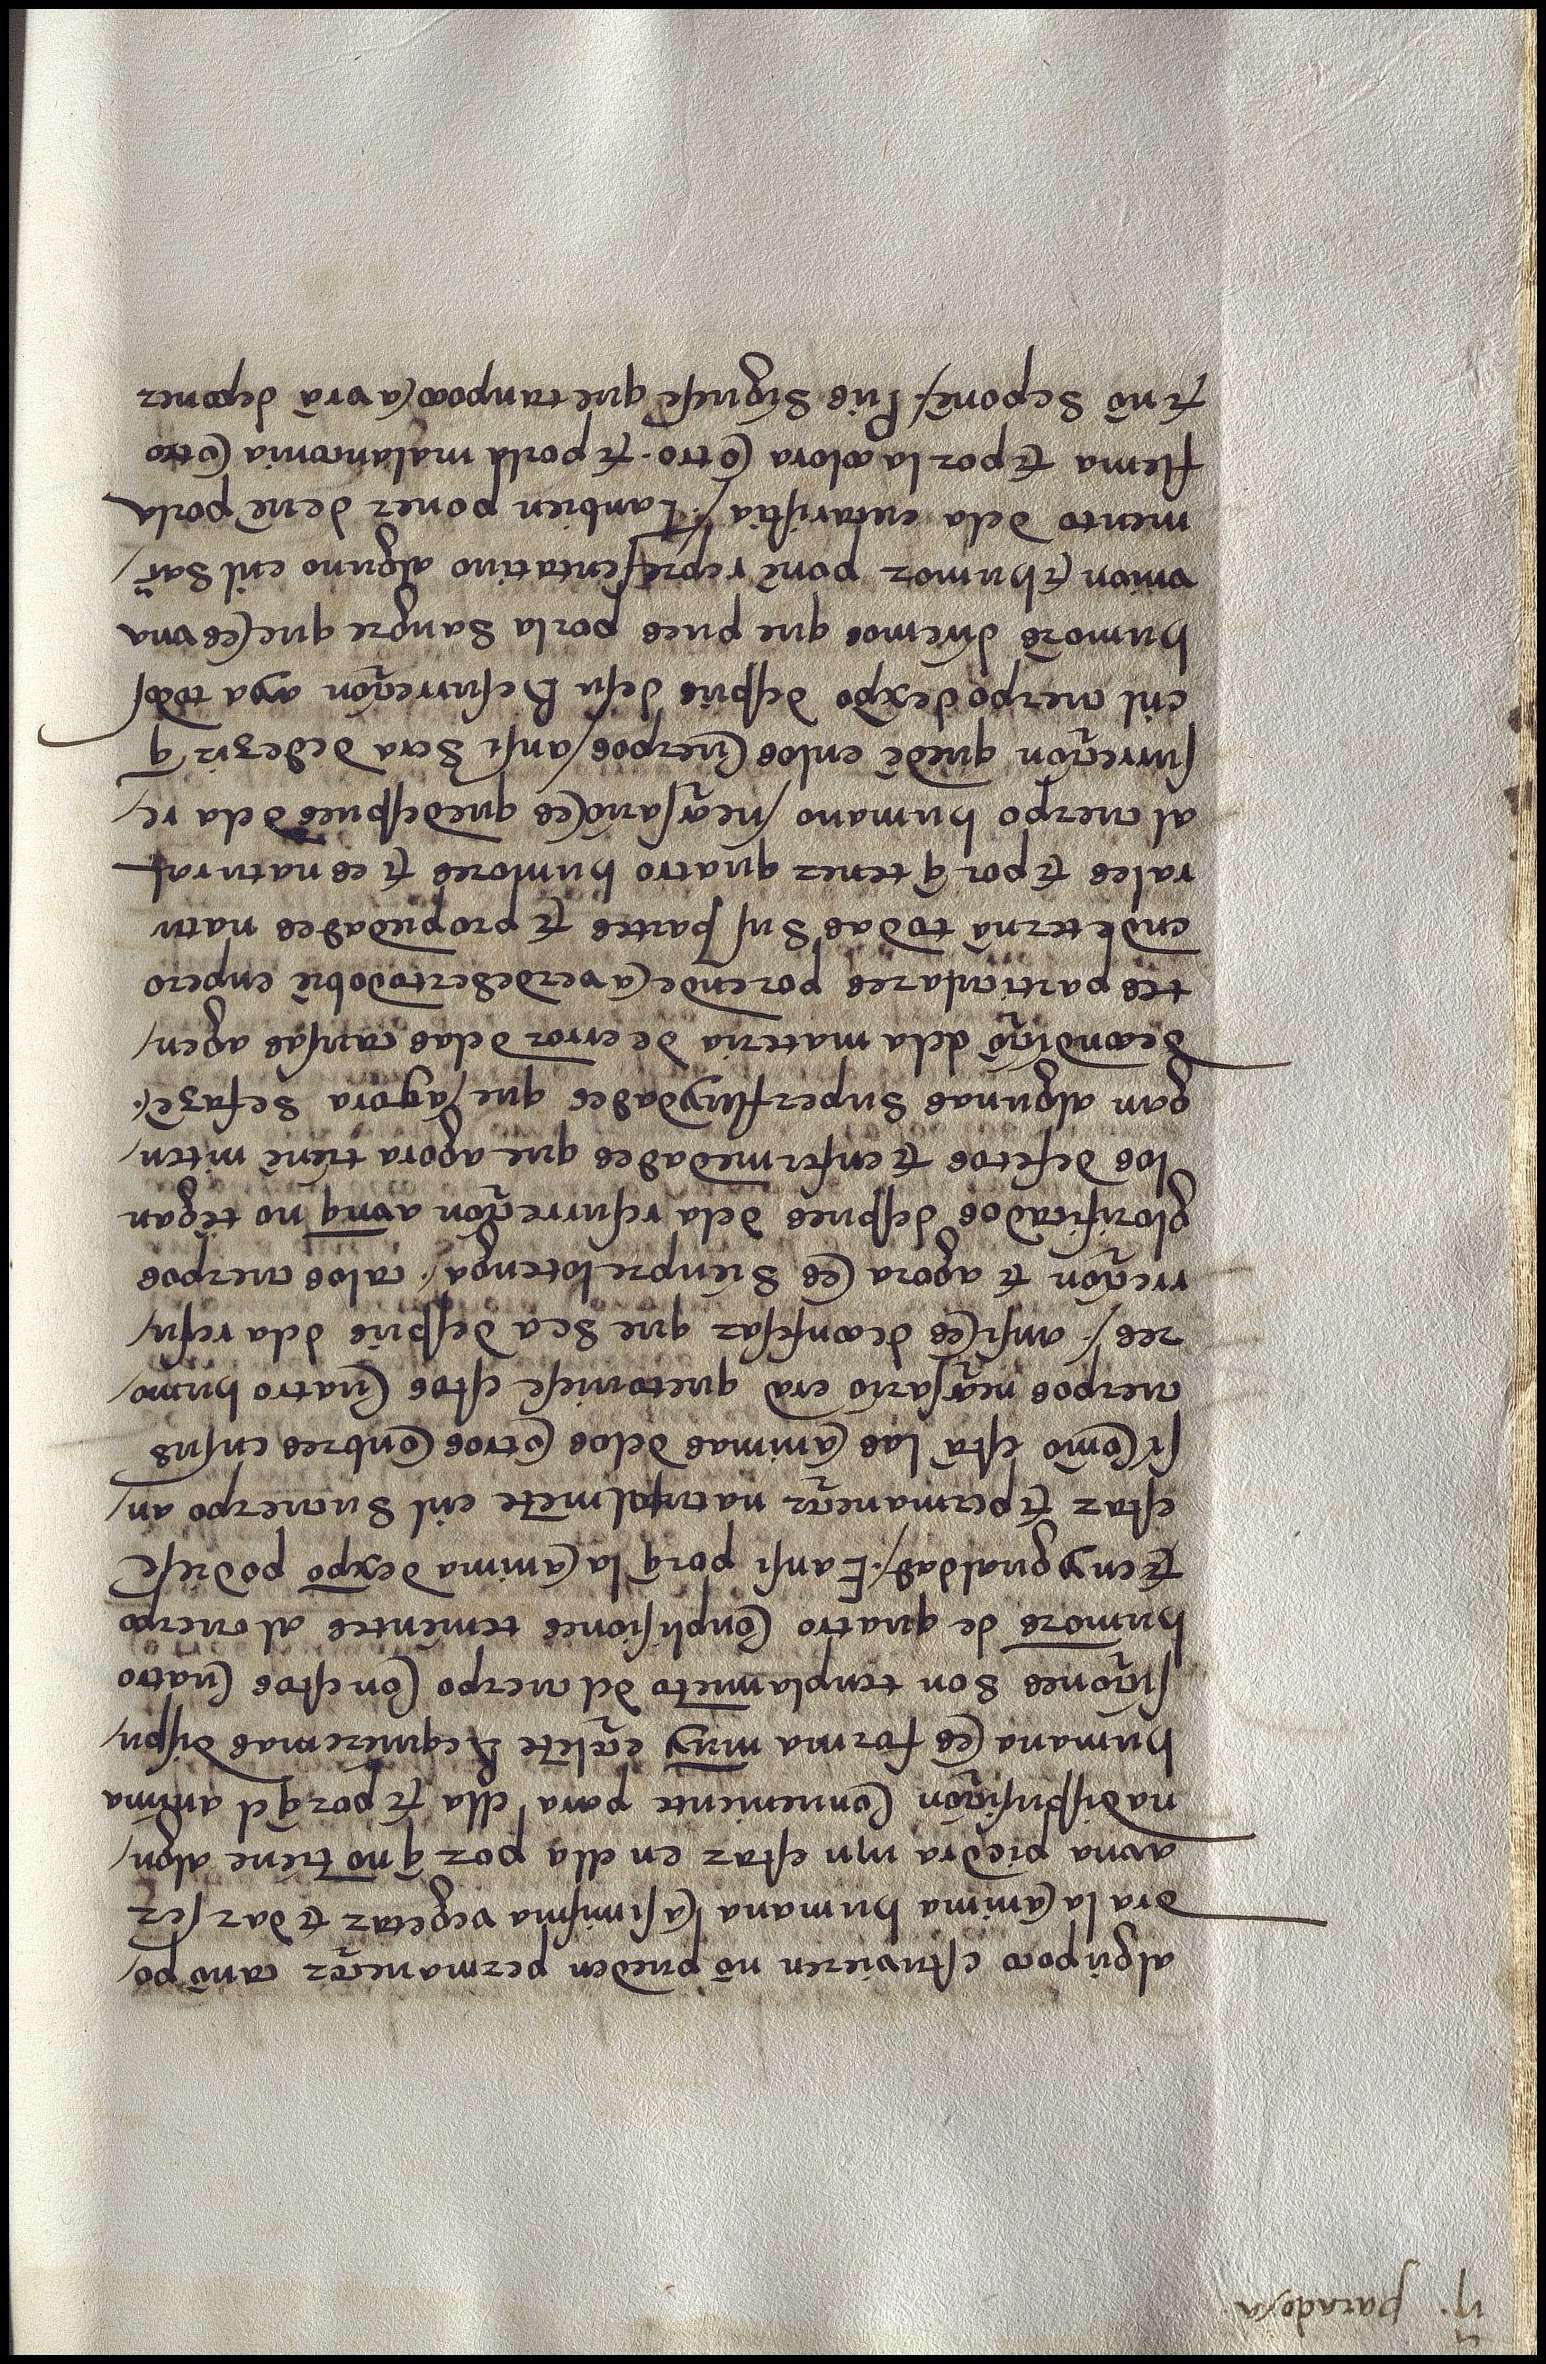 ij. paradoxa.
algũ poco estuvieren nõ pueden permanecer̃ ca nõ po/
dra la anima humana asi misma vegetar & dar ser
a vna piedra njn estar en ella por q̃ nõ tiene algu/
na dispusiçiõn conueniente para ella & por q̃ el anima
humana es forma muy eçelẽte Requiere mas dispu/
siçiones Son tenplamiẽto del cuerpo con estos quatro
humores de quatro conplisiones tenientes al cuerpo
& en ygualdad/. E ansi porq̃ la anima de xp̃o podiese
estar & permanecer̃ naturalmẽte enl Su cuerpo an/
si com̃o estã las animas delos otros onbres en sus
cuerpos neçesario era que touiese estos quatro humo/
res/. ansi es de confesar que Sea despũes dela resu/
rreçiõn & agora es Sienpre lo tenga/. ca los cuerpos
glorificados despues dela resurreçiõn avnq̃ no tẽgan
los defetos & enfermedades que agora tienẽ ni ten/
gan algunas Superfluydades que agora se fazẽ/.
de condiçiõ dela materia de error delas causas agen/
tes particulares por ende a verdadertodobiẽ enpero
ende ternã todas Sus partes & propiedades natu
rales & por q̃ tener quatro humores & es natural
al cuerpo humano/ neçesario es que despues dela re/
surreçiõn quedẽ enlos cuerpos/ ansi Sera de dezir q̃
enl cuerpo de xp̃o despũes de su Resurreçiõn aya todos
humores diremos que pues por la Sangre que es vna
vnion & humor ponẽ representatiuo alguno enl Sac̃/
mento dela eucaristia/. Tanbien poner deuẽ por la
flema & por la colora otro. & por la malanconia otro
& nõ Se ponẽ/. Pũes Siguese que tanpoco avrã de poner